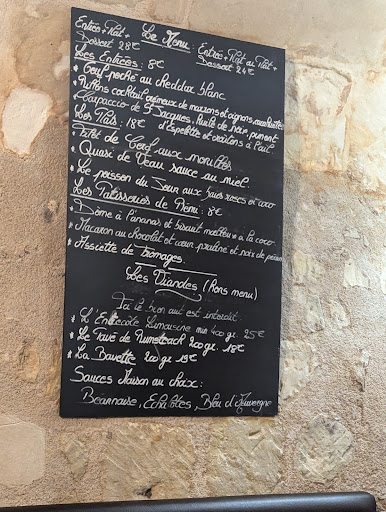 Entrée + Plat +
Dessert 28€
Le Menu:
Entrée + Plat ou Plat +
Dessert 24€
Les Entrées: 8€
* Oeuf poché au cheddar blanc
* Raviolis cocktail crémeux de marrons et oignons
* Carpaccio de St Jacques, Huile de noix, piment
Les Plats: 18€ d'Espelette et croûtons à l'ail.
* Pavé de Cerf aux morilles
* Quasi de Veau sauce au miel.
* Le poisson du Jour aux baies roses et coco
Les Patisseries de Rémi: 8€
* Dôme à l'ananas et biscuit moelleux à la coco
* Macaron au chocolat et coeur praliné et noix de pécan
* Assiette de fromages.
Les Viandes (Hors menu)
Ici le bien cuit est interdit.
* L'Entrecôte Limousine min 400 gr. 25€
* Le Pavé de Rumsteack 200 gr. 18€
* La Bavette 200 gr 15€
Sauces Maison au choix:
Bearnaise, Echalotes, Bleu d'Auvergne